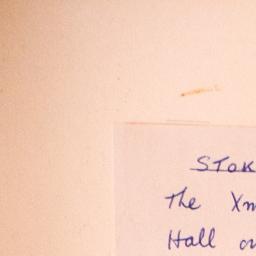 STOK
The Xm
Hall on